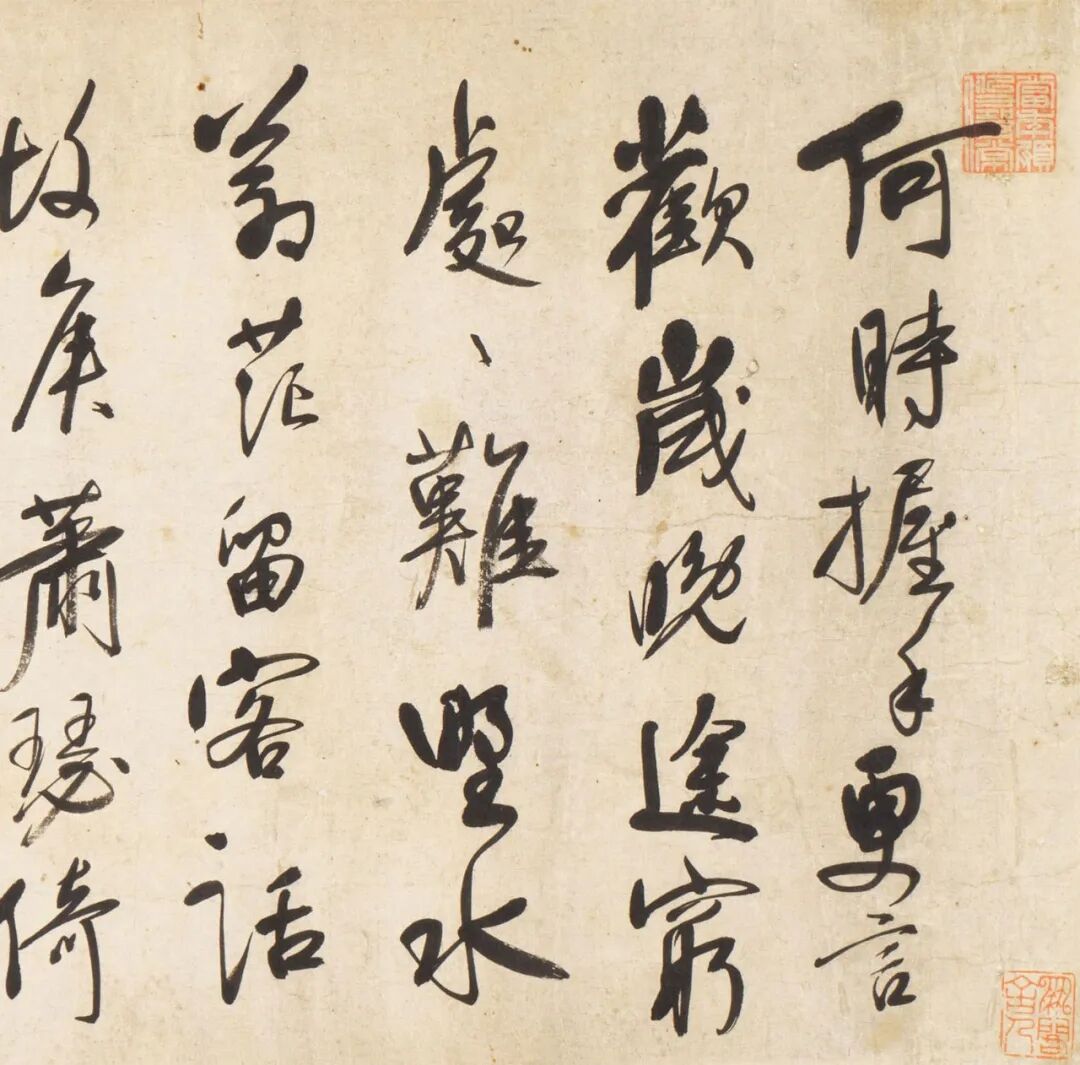 何時握手更言
歡歲晚途窮
處〻難野水
蒼茫留客話
故侯蕭瑟倚